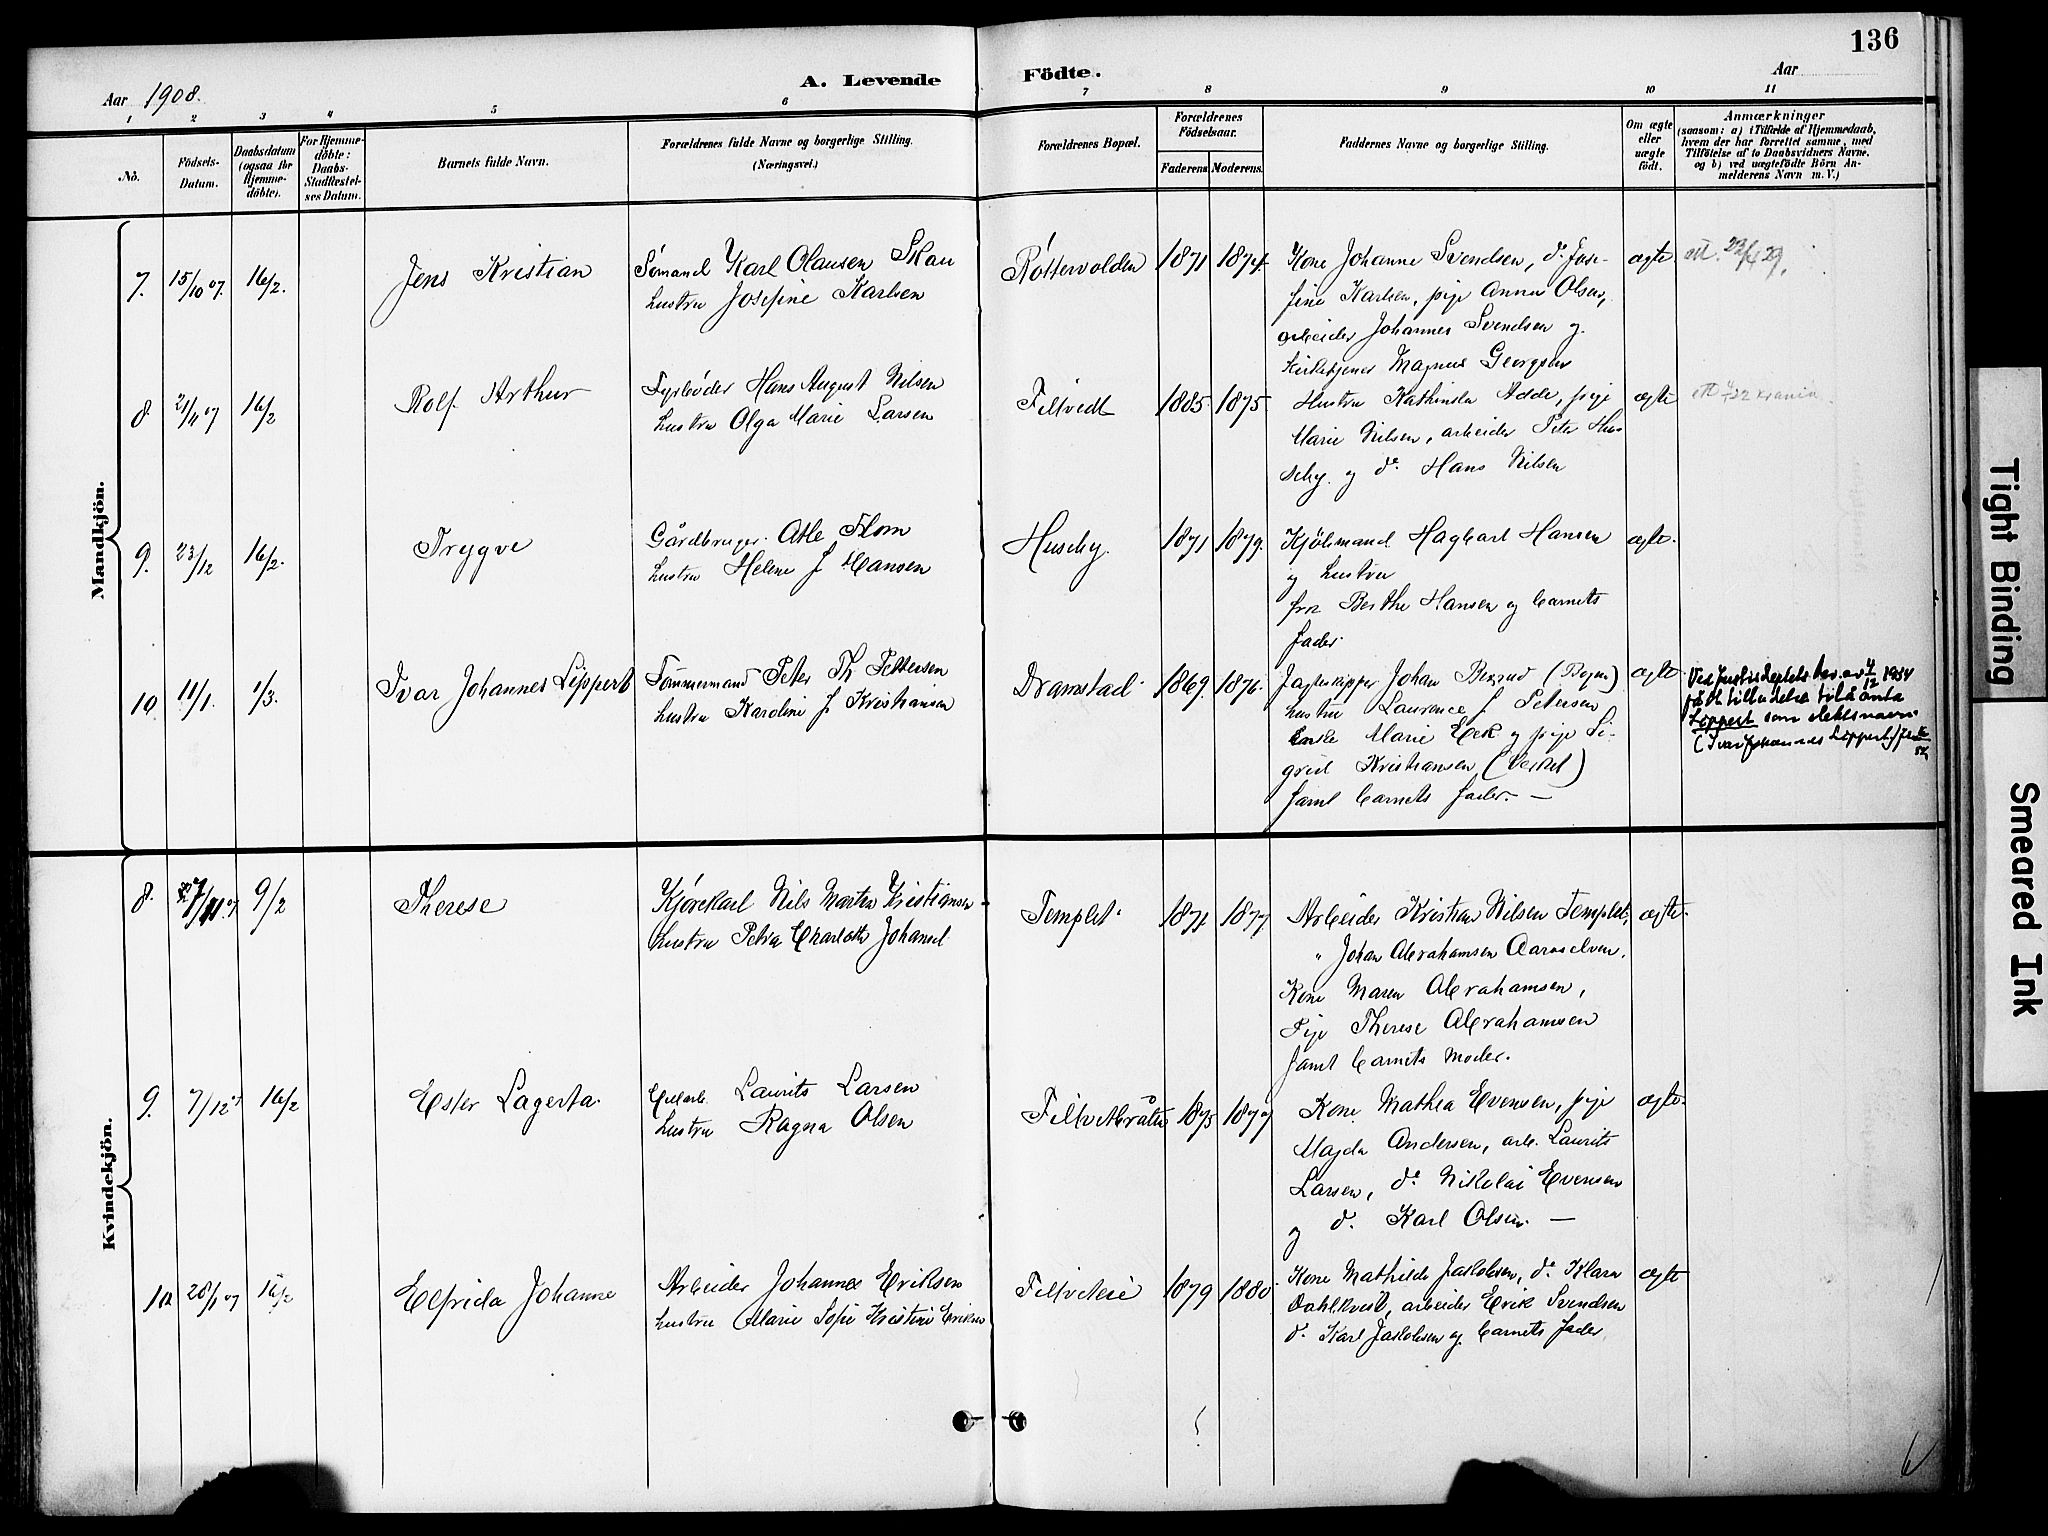 136
Aar 1908.
A. Levende Födte.
Aar
1 2 3 4 5 6 7 8 9 10 11
No.
Födsels-Datum.
Daabsdatum (ogsaa for Hjemme-döbte).
For Hjemme-döbte: Daabs-Stadfæstel-ses Datum.
Barnets fulde Navn.
Forældrenes fulde Navne og borgerlige Stilling.
(Næringsvei.)
Forældrenes Bopæl.
Forældrenes Födselsaar.
Faderens Moderens.
Faddernes Navne og borgerlige Stilling.
Om ægte eller uægte födt.
Anmærkninger
(saasom: a) i Tilfælde af Hjemmedaab,
hvem der har forrettet samme, med
Tilföielse af to Daabsvidners Navne,
og b) ved uægtefödte Börn An-
melderens Navn m. V.)
Mandkjön.
7. 15/10 07. 16/2. Jens Kristian
Sømand Karl Olausen Skau
hustru Josefine Karlsen
Røttervolden 1871 1874.
Kone Johanne Svendsen, do Jose-
fine Karlsen, pige Anna Olsen,
arbeider Johannes Svendsen og
Kirketjener Magnus Georgsen
ægte
8. 21/11 07 16/2 Rolf Arthur
Fyrbøder Hans August Nilsen
hustru Olga Marie Larsen
Filtvedt 1885. 1875.
Hustru Kathinka Adde, pige
Marie Nilsen, arbeider Peter Hu-
seby og do Hans Nilsen
ægte
9. 23/12 16/2. Trygve
Gårdbruger Atle Flom
hustru Helene f Hansen
Huseby. 1871 1879.
Kjøbmand Hagbart Hansen
og hustru
frk Berthe Hansen og barnets
fader
ægte.
10 11/1. 1/3. Ivar Johannes Lippert
Tømmermand Peter Th Pettersen
hustru Karoline f Kristiansen
Dramstad 1869. 1876.
Jagteskipper Johan
hustru Laurence f Petersen
Enke Marie Eek og pige Si-
grid Kristiansen
samt barnets fader. —
ægte
Ved Justisdeptets bev. av 4/12 1954
tilladelse til å anta
Lippert som slektsnavn
(Ivar Johannes Lippert)
Kvindekjön.
8. 9/2 Therese
Kjørekarl Nils Martin Kristiansen
hustru Petra Charlotte Johansd
Templet. 1871. 1877
Arbeider Kristian Nilsen Templet,
" Johan Abrahamsen Aaroselven.
Kone Maren Abrahamsen,
Pige Therese Abrahamsen
samt barnets moder.
ægte.
9. 7/12 07 16/2 Ester Lagerta.
Laurits Larsen
hustru Ragna Olsen
Filtvetbråten 1875 1877
Kone Mathea Evensen, pige
Magda Andersen, arb. Laurits
Larsen, do Nikolai Evensen
og do. Karl Olsen. —
ægte.
10 16/2 Elfrida Johanne
Arbeider Johannes Eriksen
hustru Marie Sofie Kristine Eriksen
Filtveteie 1879 1880
Kone Mathilde Jakobsen, do Klara
Dahlkvist, arbeider Erik Svendsen
do. Karl Jakobsen og barnets fader
ægte
Tight Binding
Smeared Ink